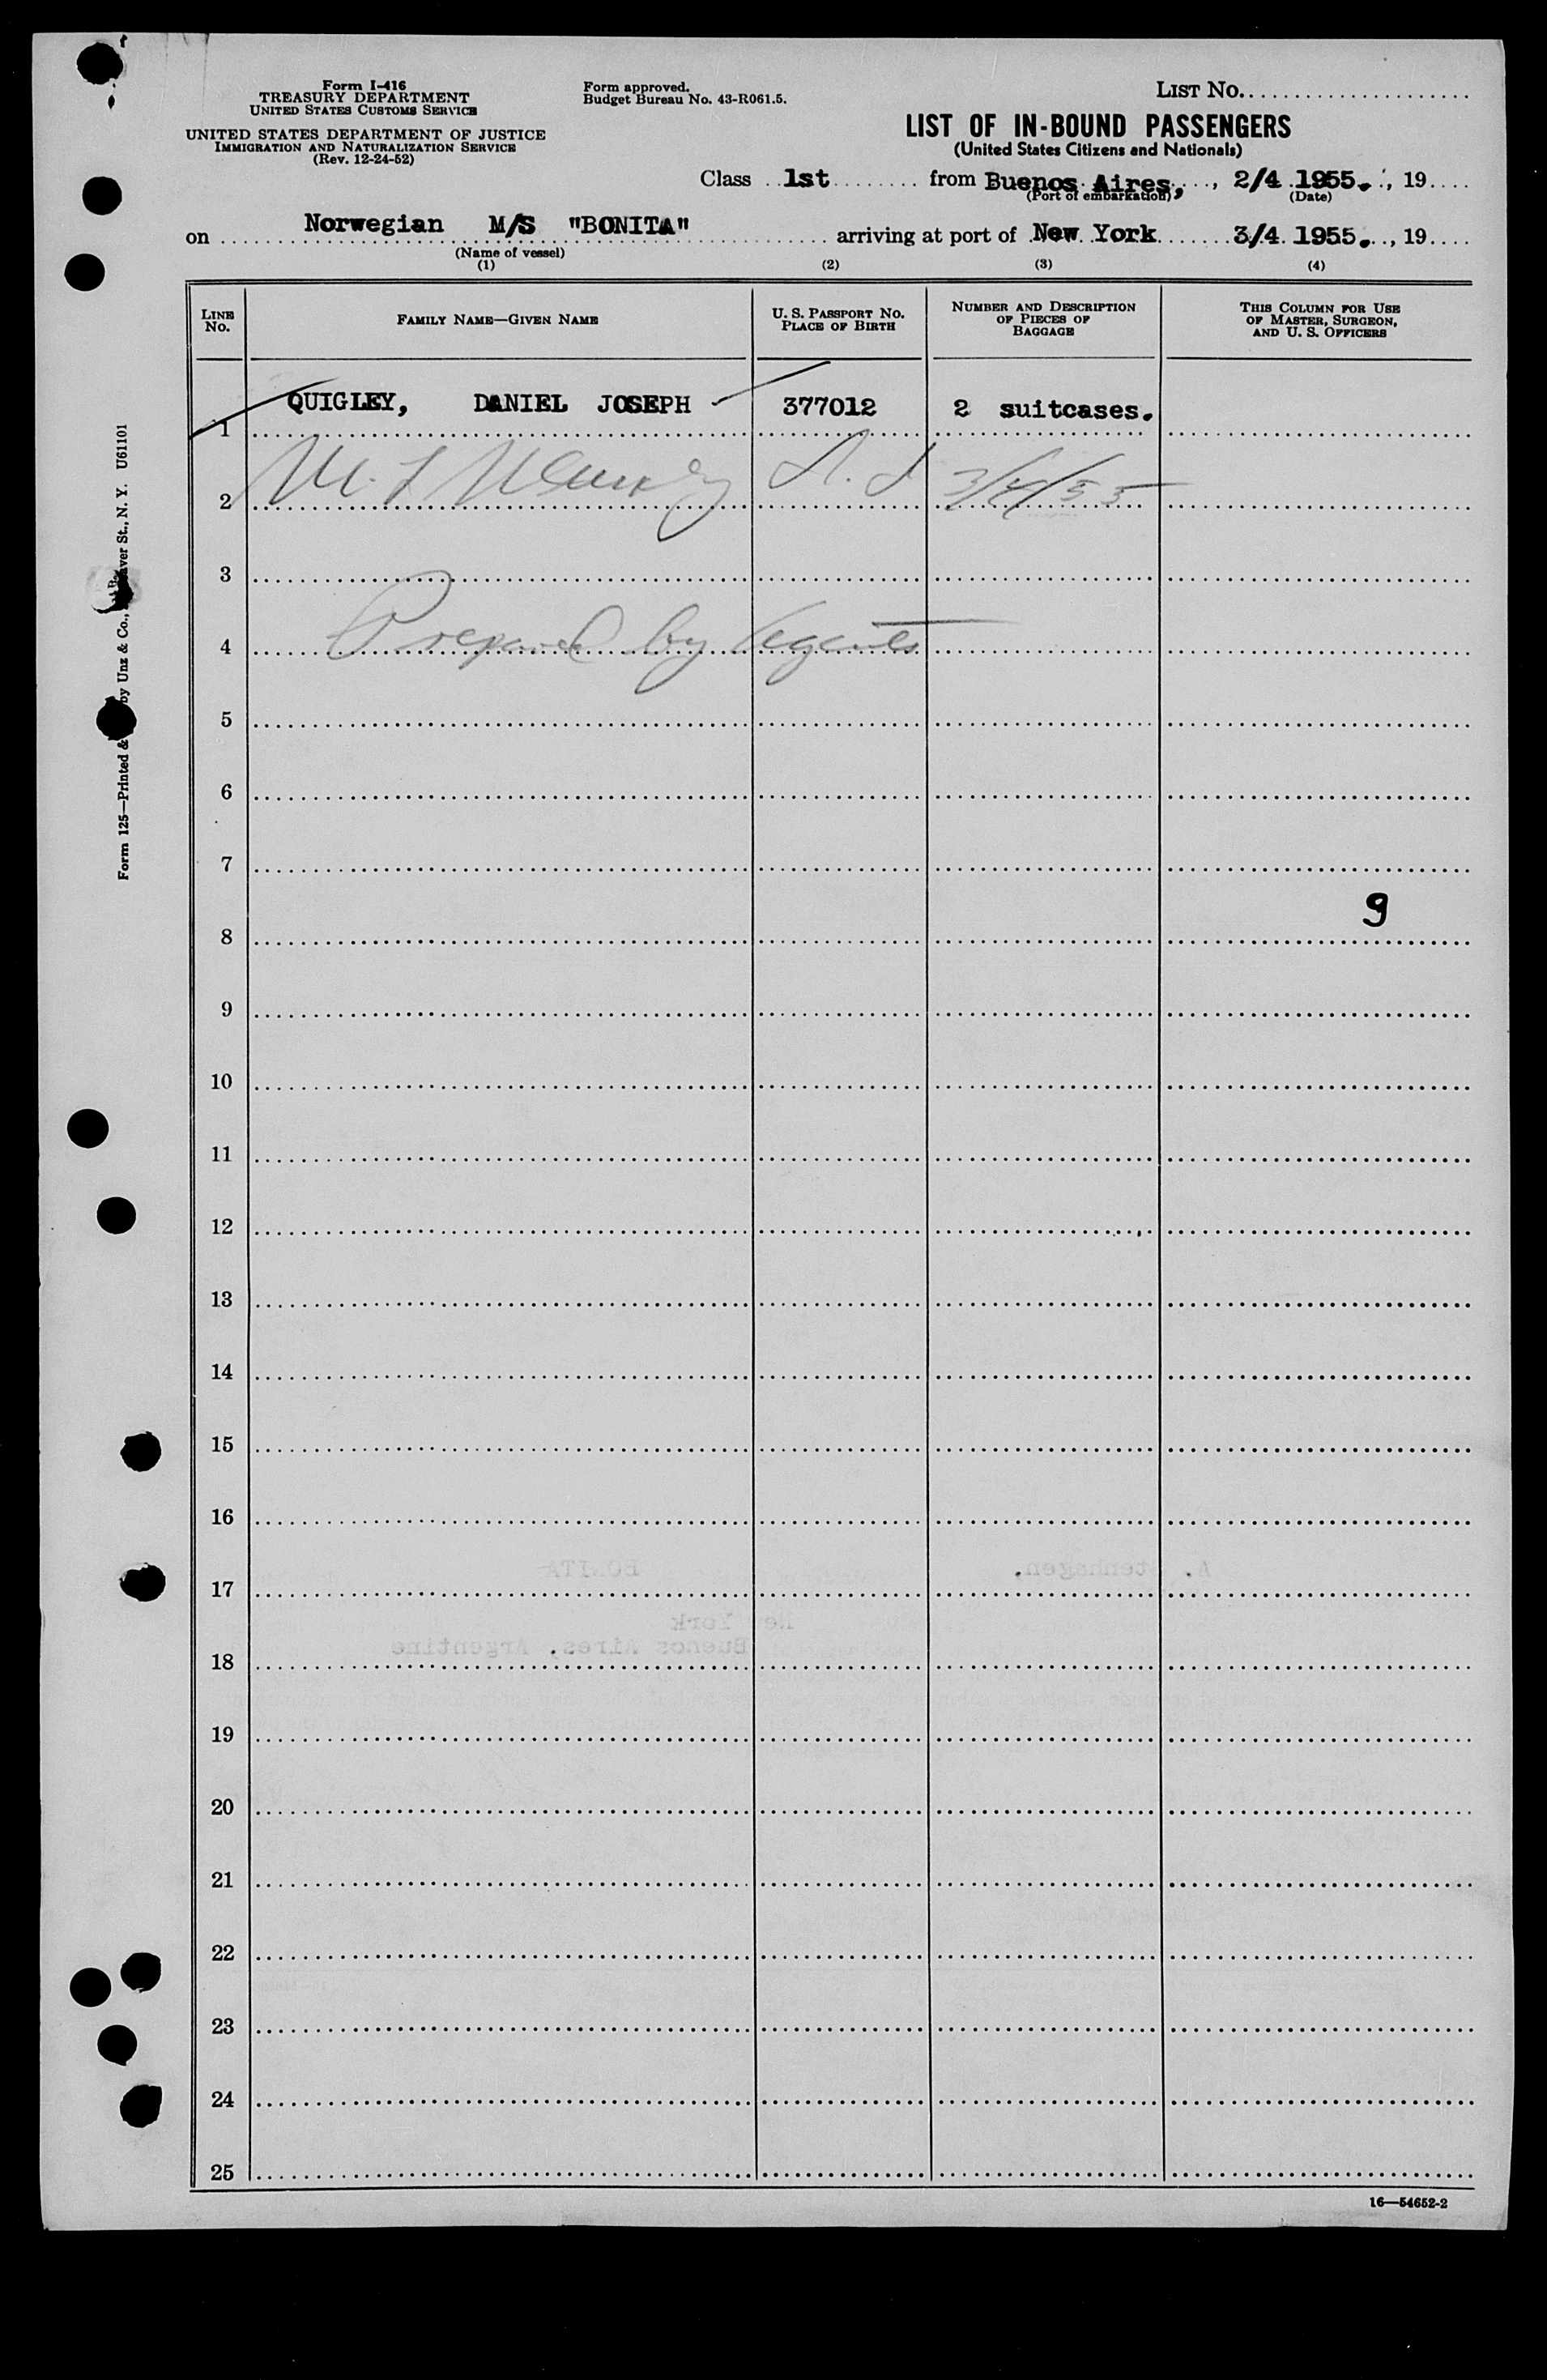 Form I-416
TREASURY DEPARTMENT
UNITED STATES CUSTOMS SERVICE
UNITED STATES DEPARTMENT OF JUSTICE
IMMIGRATION AND NATURALIZATION SERVICE
(Rev. 12-24-52)
Form approved.
Budget Bureau No. 43-R061.5.
LIST No.
LIST OF IN-BOUND PASSENGERS
(United States Citizens and Nationals)
Class 1st from Buenos Aires, , 2/4 1955. , 19
(Port of embarkation) (Date)
on Norwegian M/S "BONITA" arriving at port of New York 3/4 1955. , 19
(Name of vessel)
(1) (2) (3) (4)
LINE No. FAMILY NAME—GIVEN NAME U. S. PASSPORT No. PLACE OF BIRTH NUMBER AND DESCRIPTION OF PIECES OF BAGGAGE THIS COLUMN FOR USE OF MASTER, SURGEON, AND U. S. OFFICERS
1 QUIGLEY, DANIEL JOSEPH 377012 2 suitcases.
2 3/4/55
3
4 Prepared by Agents
5
6
7
8 9
9
10
11
12
13
14
15
16
17
18
19
20
21
22
23
24
25
16—54652-2
Form 125—Printed & by Unz & Co., aver St., N. Y. U61101